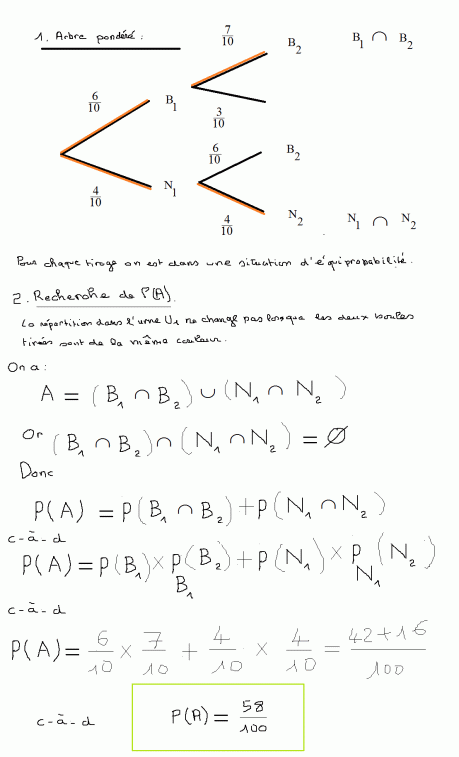 1. Arbre pondéré :
7/10 B₂ B₁ ∩ B₂
6/10 B₁
3/10
6/10 B₂
4/10 N₁
4/10 N₂ N₁ ∩ N₂
Pour chaque tirage on est dans une situation d'équiprobabilité.
2. Recherche de P(A).
La répartition dans l'urne U₁ ne change pas lorsque les deux boules
tirées sont de la même couleur.
On a :
A = (B₁ ∩ B₂) ∪ (N₁ ∩ N₂)
Or (B₁ ∩ B₂) ∩ (N₁ ∩ N₂) = ∅
Donc
P(A) = P(B₁ ∩ B₂) + P(N₁ ∩ N₂)
c-à-d
P(A) = P(B₁) × P_B₁(B₂) + P(N₁) × P_N₁(N₂)
c-à-d
P(A) = 6/10 × 7/10 + 4/10 × 4/10 = 42+16/100
c-à-d P(A) = 58/100